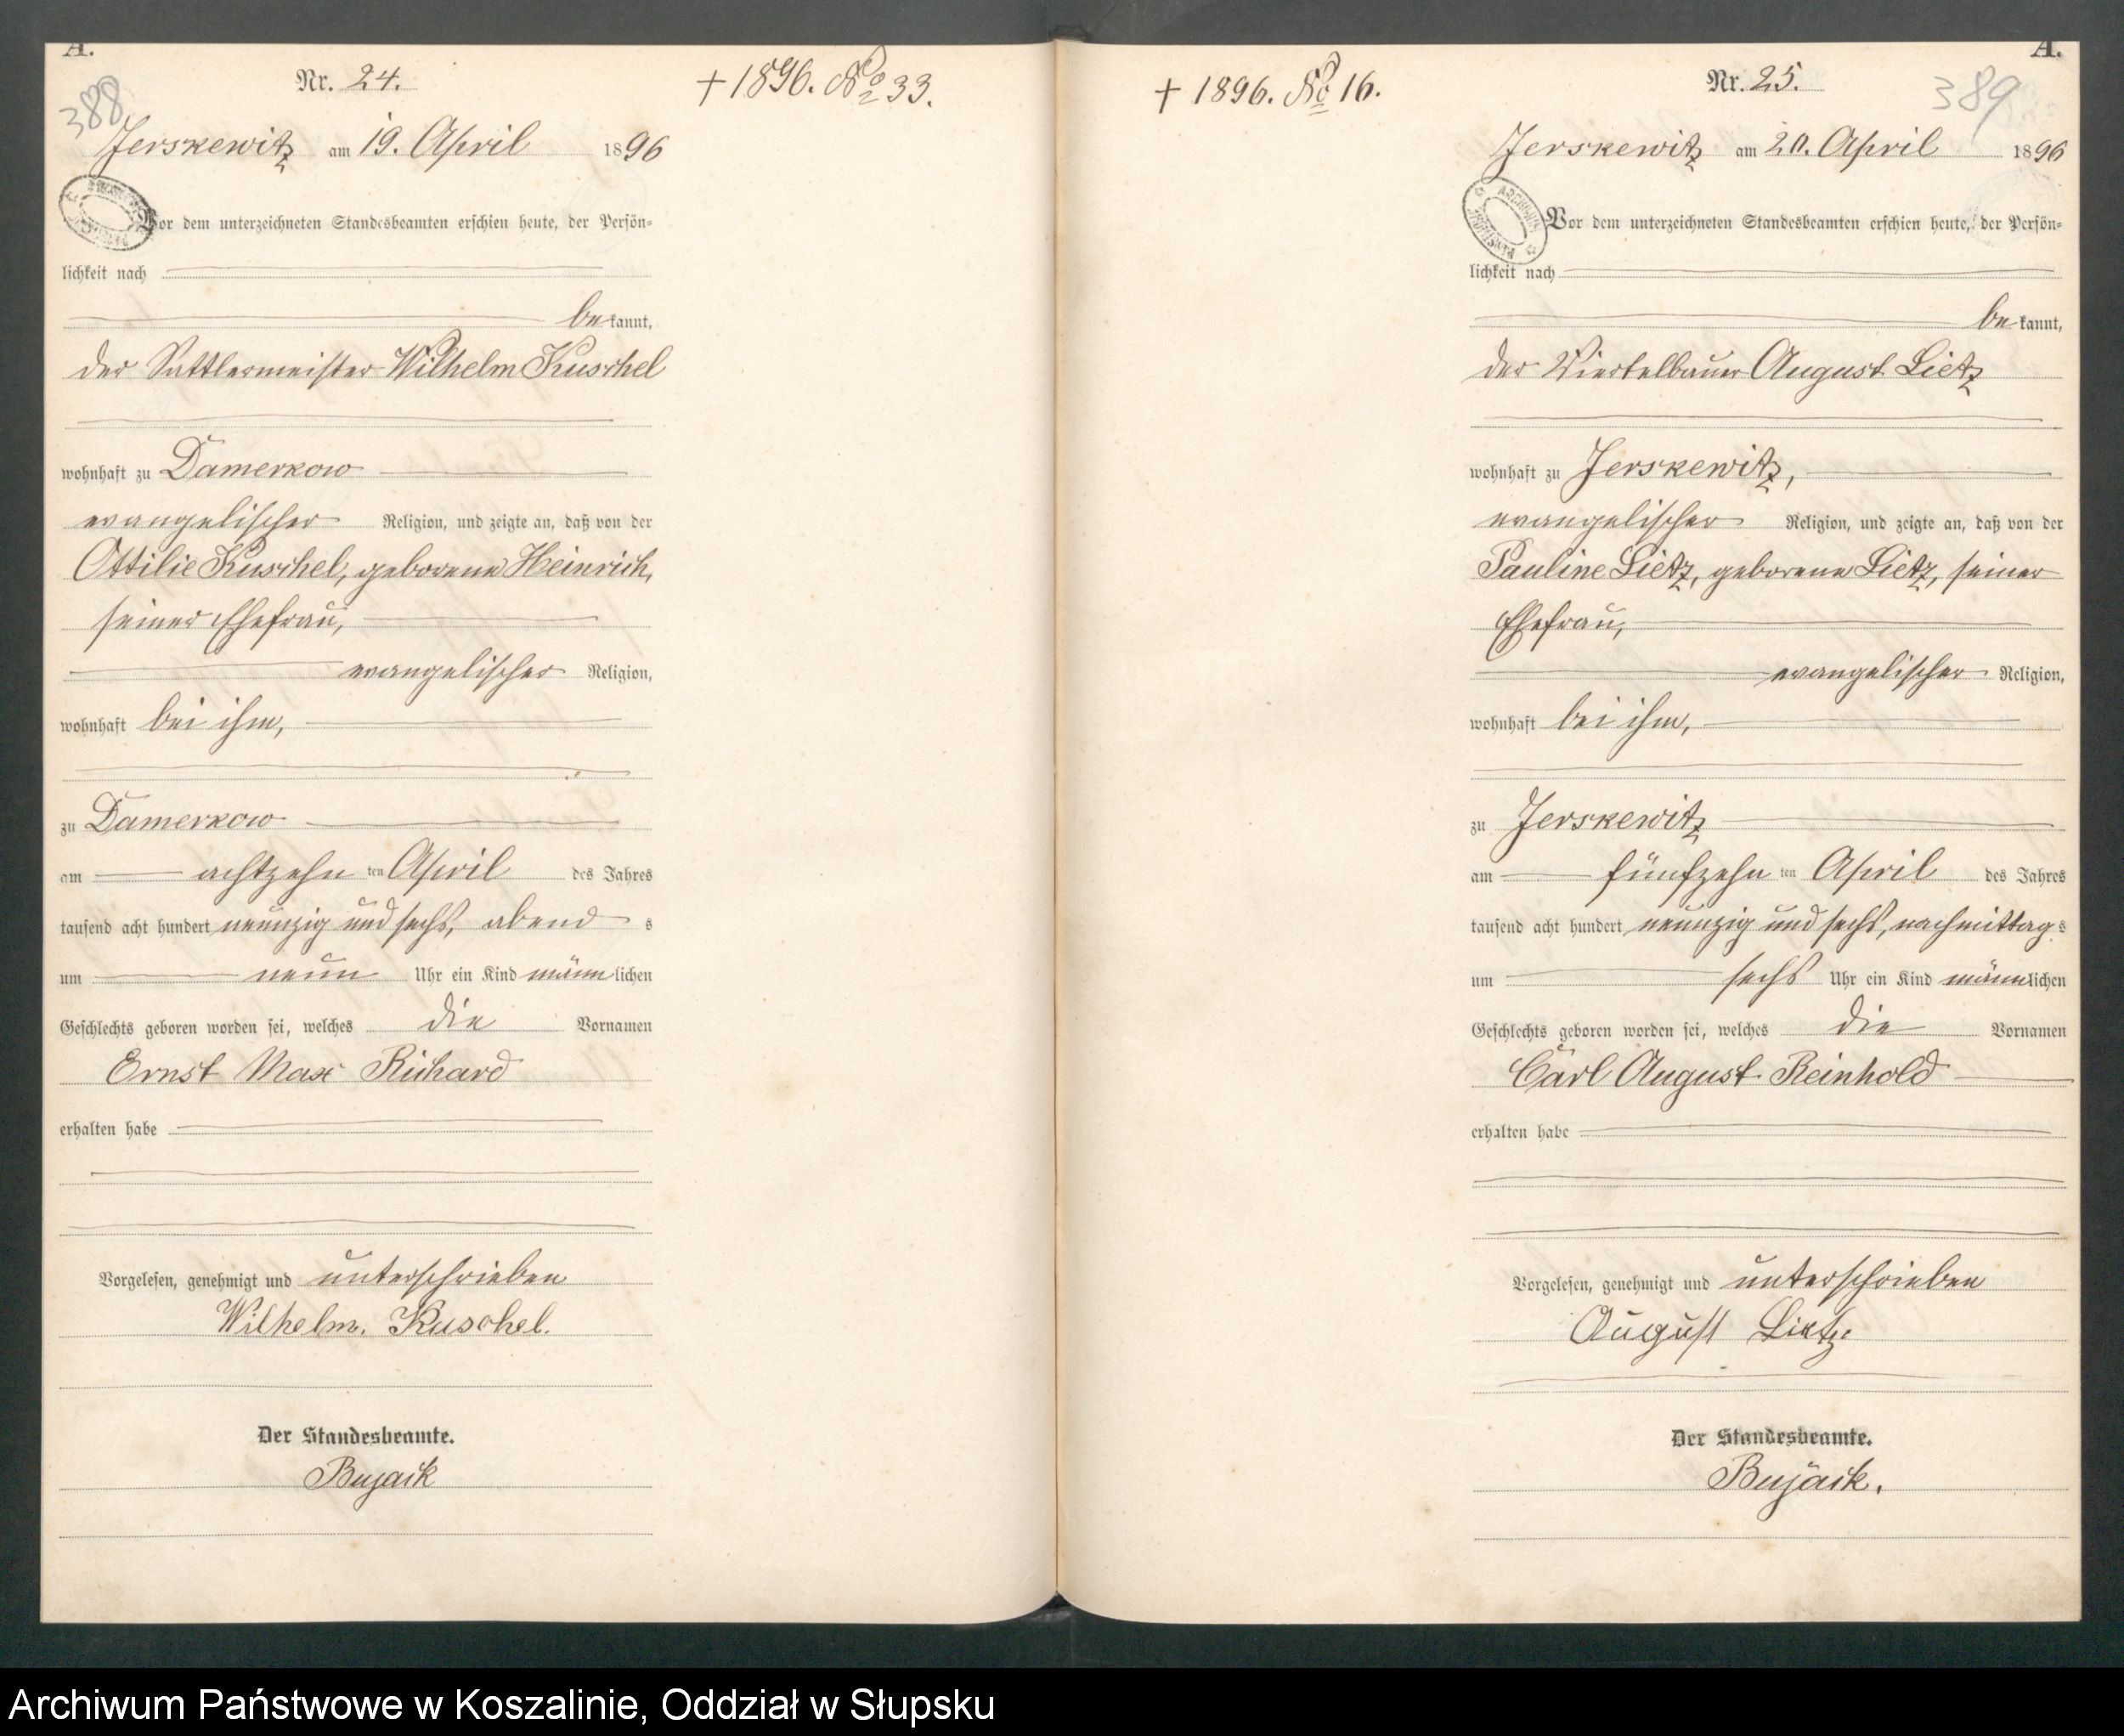 A.
Nr. 24.
388
Jerskewitz am 19. April 1896
Vor dem unterzeichneten Standesbeamten erschien heute, der Persön-
lichkeit nach
bekannt,
der Sattlermeister Wilhelm Kuschel
wohnhaft zu Damerkow
evangelischer Religion, und zeigte an, daß von der
Ottilie Kuschel, geborene Heinrich,
seiner Ehefrau,
evangelischer Religion,
wohnhaft bei ihm,
zu Damerkow
am achtzehn ten April des Jahres
tausend acht hundert neunzig und sechs, abend s
um neun Uhr ein Kind männlichen
Geschlechts geboren worden sei, welches die Vornamen
Ernst Max Richard
erhalten habe
Vorgelesen, genehmigt und unterschrieben
Wilhelm. Kuschel.
Der Standesbeamte.
Bujack
+ 1896. No 33.
+ 1896. No 16.
A.
Nr. 25.
389
Jerskewitz am 20. April 1896
ARCHIWUM PAŃSTWOWE
Vor dem unterzeichneten Standesbeamten erschien heute, der Persön-
lichkeit nach
bekannt,
der Viertelbauer August Lietz
wohnhaft zu Jerskewitz,
evangelischer Religion, und zeigte an, daß von der
Pauline Lietz, geborene Lietz, seiner
Ehefrau,
evangelischer Religion,
wohnhaft bei ihm,
zu Jerskewitz
am fünfzehn ten April des Jahres
tausend acht hundert neunzig und sechs, nachmittag s
um sechs Uhr ein Kind männlichen
Geschlechts geboren worden sei, welches die Vornamen
Carl August Reinhold
erhalten habe
Vorgelesen, genehmigt und unterschrieben
August Lietz.
Der Standesbeamte.
Bujack.
Archiwum Państwowe w Koszalinie, Oddział w Słupsku